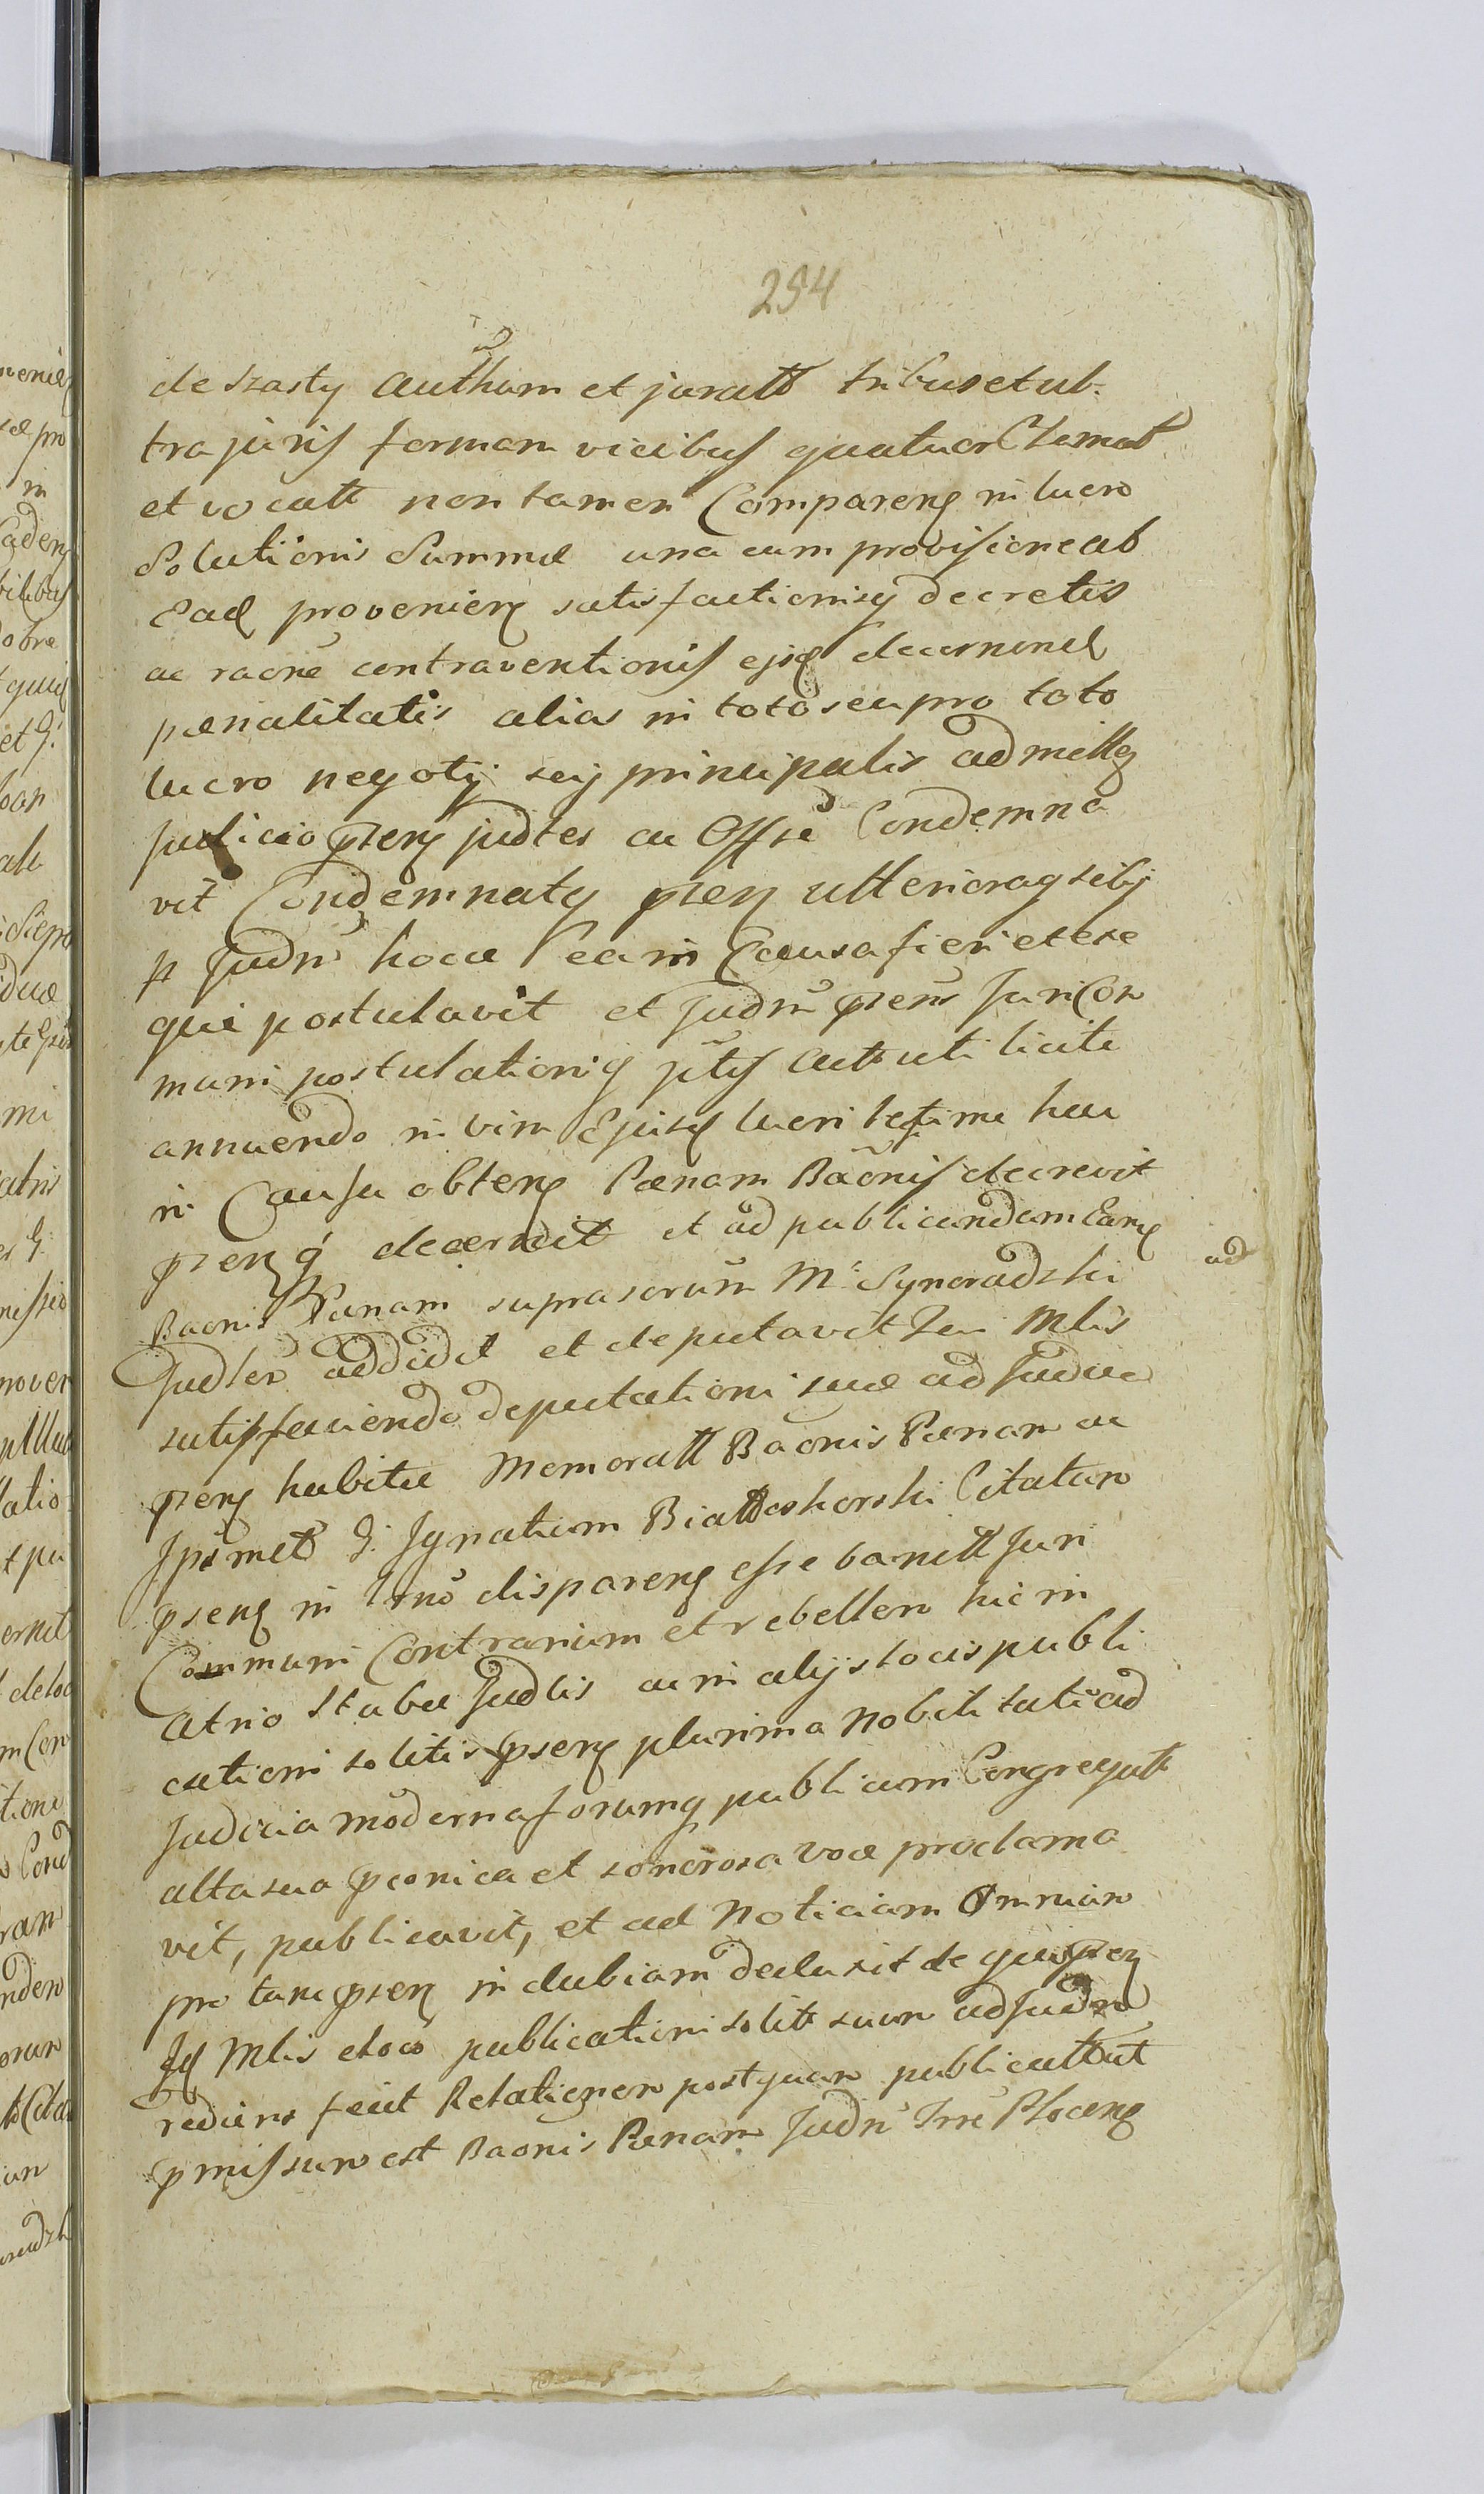 294
de szasty authum et juratt tribus et ul-
tra juris formam vicibus quatuor Clamat
et vocatt non tamen Comparens in lucro
Solutionis Summæ una cum provisione ab
Ead provenien satisfactionisq decretis
ac raone contraventionis ejsd decernend
pænalitatis alias in toto seu pro toto
lucro negotij sui principalis admittq
judicio pten judtes ac Offse Condemna
vit Condemnatq pten ulterioraq sibj
p Judm hocce ea in Causa fieri et exe
qui postulavit et Judm ptens Juri Com
muni postulationiq ptis actt uti licite
annuendo in vim Ejusd lucri leime hac
in Causa obtens Pænam Baonis decrevit
ptenq decernit et ad publicandum Eamq ad
Baonis Pænam suprascrum M. Synoradzki
Judler addidit et deputavit Qui Mlis
satisfaciendo deputationi suæ ad Judice
pten habitæ Memoratt Baonis Pænam ac
Jpsmet G. Jgnatium Białoskorski Citatum
psens in Trno disparens esse banitt Juri
Communi Contrarium et rebellem hic in
Atrio Stubæ Judlis ac in alijs locis publi
cationi solitis psen plurima Nobilitate ad
Judicia moderna forumq publicum Congregatt
alta sua pconica et sonorosa voce proclama
vit, publicavit, et ad Noticiam Omnium
pro tunc psen indubiam deduxit de qui psen
Jd Mlis e loco publicationi solito suum ad Judm
rediens fecit Relationem postquam publicatt ut
pmissum est Baonis Pænam Judm Trre Plocens